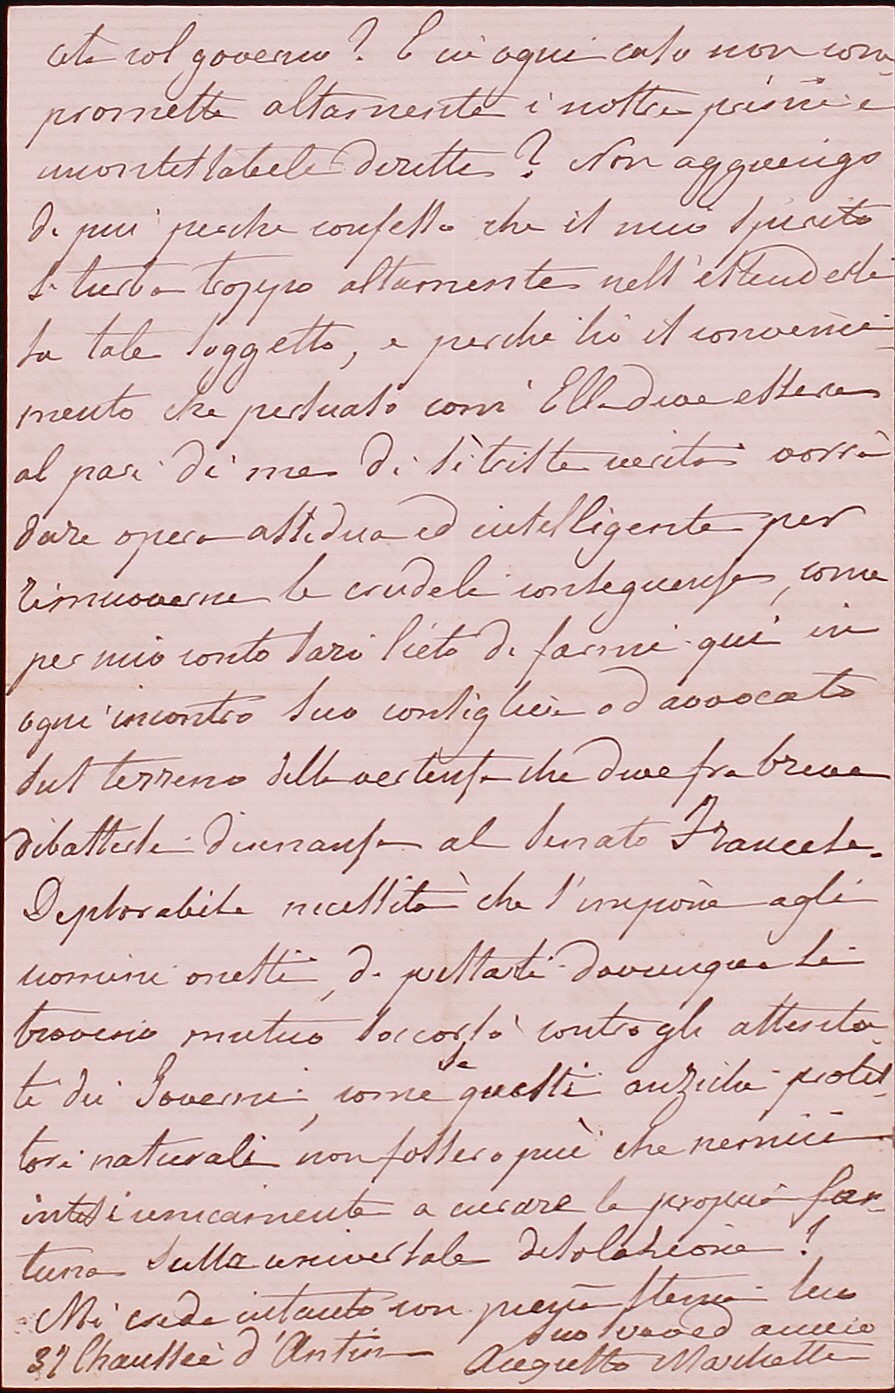 col governo? E in ogni caso non com
promette altamente i nostri primi e
incontestabili diritti? Non aggiungo
di più perche confesso che il mio spirito
si turba troppo altamente nell'estendersi
su tale soggetto, e perche hò il convenci
mento che persuaso com' Ella deve essere
al pari di me di sì triste verità vorrà
dare opera assidua ed intelligente per
rimuoverne le crudeli conseguenze, come
per mio conto sarò lieto di farmi qui in
ogni incontro suo consigliere od avvocato
sul terreno della vertenza che deve fra breve
dibattersi dinnanzi al Senato Francese.
Deplorabile necessità che s'impone agli
uomini onesti, di prestarsi dovunque si
trovino mutuo soccorso contro gli attenta
ti dei Governi, come se questi anziche protet
tori naturali non fossero più che nemici
intesi unicamente a curare la propria for
tuna sulla universale desolazione!
Mi creda intanto con piena stima suo
suo amico
37 Chaussée d'Antin Augusto Marchetti